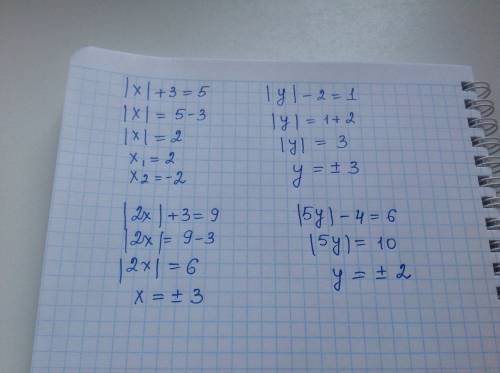 |x| + 3 = 5
|x| = 5 - 3
|x| = 2
x₁ = 2
x₂ = -2
|y| - 2 = 1
|y| = 1 + 2
|y| = 3
y = ± 3
|2x| + 3 = 9
|2x| = 9 - 3
|2x| = 6
x = ± 3
|5y| - 4 = 6
|5y| = 10
y = ± 2